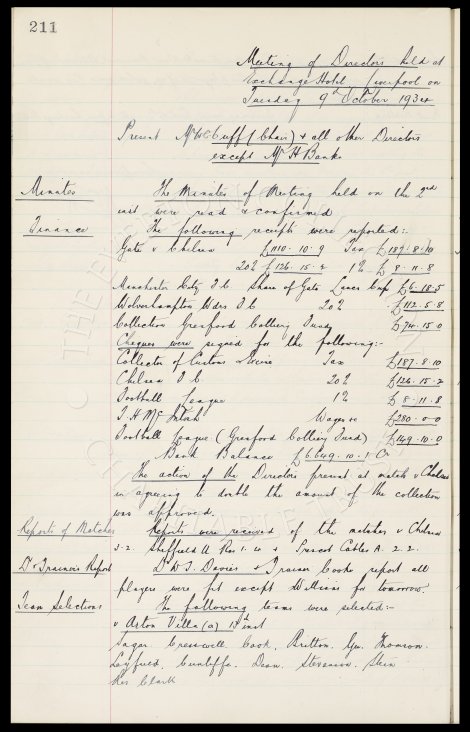 211
Meeting of Directors held at
Exchange Hotel Liverpool on
Tuesday 9th October 1934
Present Mr W C Cuff (Chair) & all other Directors
except Mr H Banks
Minutes
The Minutes of Meeting held on the 2nd
inst were read & confirmed
Finance
The following receipts were reported:-
Gate v Chelsea £1110.10.9 Tax £187.8.10
20% £126.15.2 1% £8.11.8
Manchester City F C Share of Gate Lancs Cup £6.18.5
Wolverhampton Wdrs F C 20% £112.5.8
Collection Gresford Colliery Fund £74.15.0
Cheques were signed for the following:-
Collector of Customs & Excise Tax £187.8.10
Chelsea F C 20% £126.15.2
Football League 1% £8.11.8
T. H. McIntosh Wages £280.0.0
Football League (Gresford Colliery Fund) £149.10.0
Bank Balance £6,649.10.1 Cr
The action of the Directors present at match v Chelsea
in agreeing to double the amount of the collection
was approved.
Reports of Matches
Reports were received of the matches v Chelsea
3-2 Sheffield U Res 1. & Prescot Cables A. 2.2.
Dr & Trainer's Report
Dr W. J. Davies & Trainer Cooke report all
players were fit except Williams for tomorrow.
Team Selections
The following teams were selected:-
v Aston Villa (a) 13th inst
Sagar Cresswell Cook. Britton. Gee Thomson.
Leyfield. Cunliffe. Dean. Stevenson. Stein
Res Clark